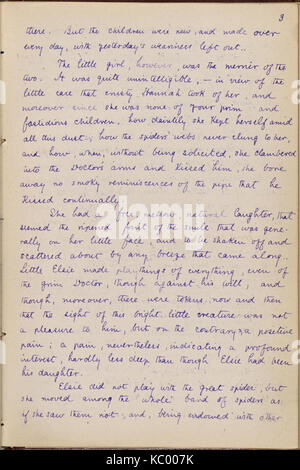 3
there. But the children were new, and made over
every day, with yesterday's weariness left out.
The little girl, however, was the merrier of the
two. It was quite unintelligible, – in view of the
little care that crusty Hannah took of her, and
moreover since she was none of your prim and
fastidious children, how daintily she kept herself amid
all this dust; how the spiders' webs never clung to her,
and how, when, without being solicited, she clambered
into the Doctor's arms and kissed him, she bore
away no smoky reminiscences of the pipe that he
kissed continually.
She had a free, mellow, natural laughter, that
seemed the ripened fruit of the smile that was gene-
rally on her little face, and to be shaken off and
scattered about by any breeze that came along.
Little Elsie made playthings of everything, even of
the grim Doctor, though against his will, and
though, moreover, there were tokens, now and then
that the sight of this bright little creature was not
a pleasure to him, but on the contrary a positive
pain; a pain, nevertheless, indicating a profound
interest, hardly less deep than though Elsie had been
his daughter.
Elsie did not play with the great spider, but
she moved among the whole band of spiders as
if she saw them not, and, being endowed with other
alamy
Image ID: KC007K
www.alamy.com